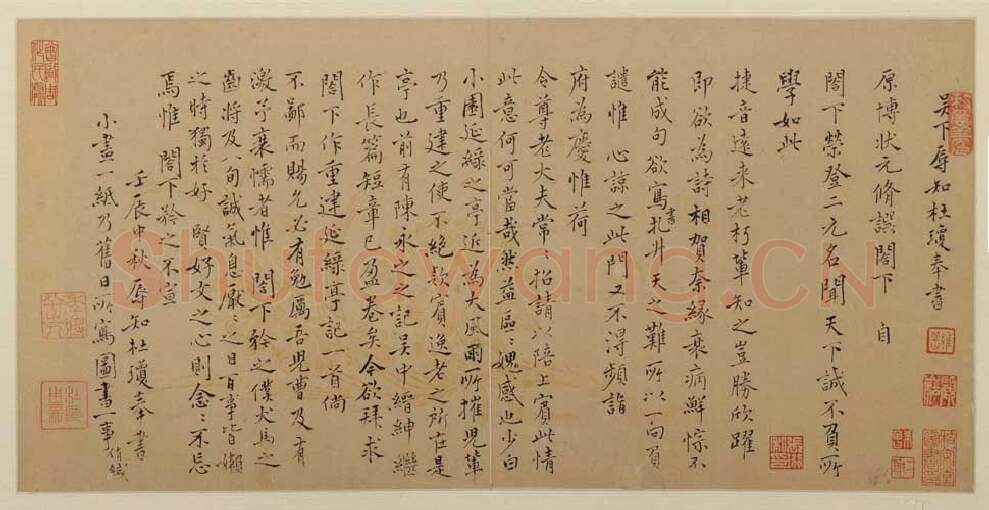 吴下辱知杜瓊奉書
原博狀元脩譔閤下 自
閤下榮登二元名聞天下誠不負所
學如此
捷音遠來老朽輩知之豈勝欣躍
即欲為詩相賀奈緣衰病鮮悰不
能成句欲寫書札升天之難所以一向負
譴惟 心諒之此門又不得頻詣
府為慶惟荷
令尊老大夫常〻招請以陪上賓此情
此意何可當哉然益區〻媿感也少白
小圃延綠之亭近為大風雨所摧兒輩
乃重建之使不絕欵賓逸老之所在是
亭也前有陳永之之記吴中縉紳繼
作長篇短章已盈卷矣今欲拜求
閤下作重建延綠亭記一首倘
不鄙而賜允必有勉厲吾兒曹及有
激予衰懦者惟 閤下矜之僕犬馬之
齒將及八旬誠氣息厭〻之日百事皆嬾
之時獨於好賢好文之心則念〻不忘
焉惟 閤下矜之不宣
壬辰中秋辱知杜瓊奉書
小畫一紙乃舊日所寫圖書一事
Shufawang.CN